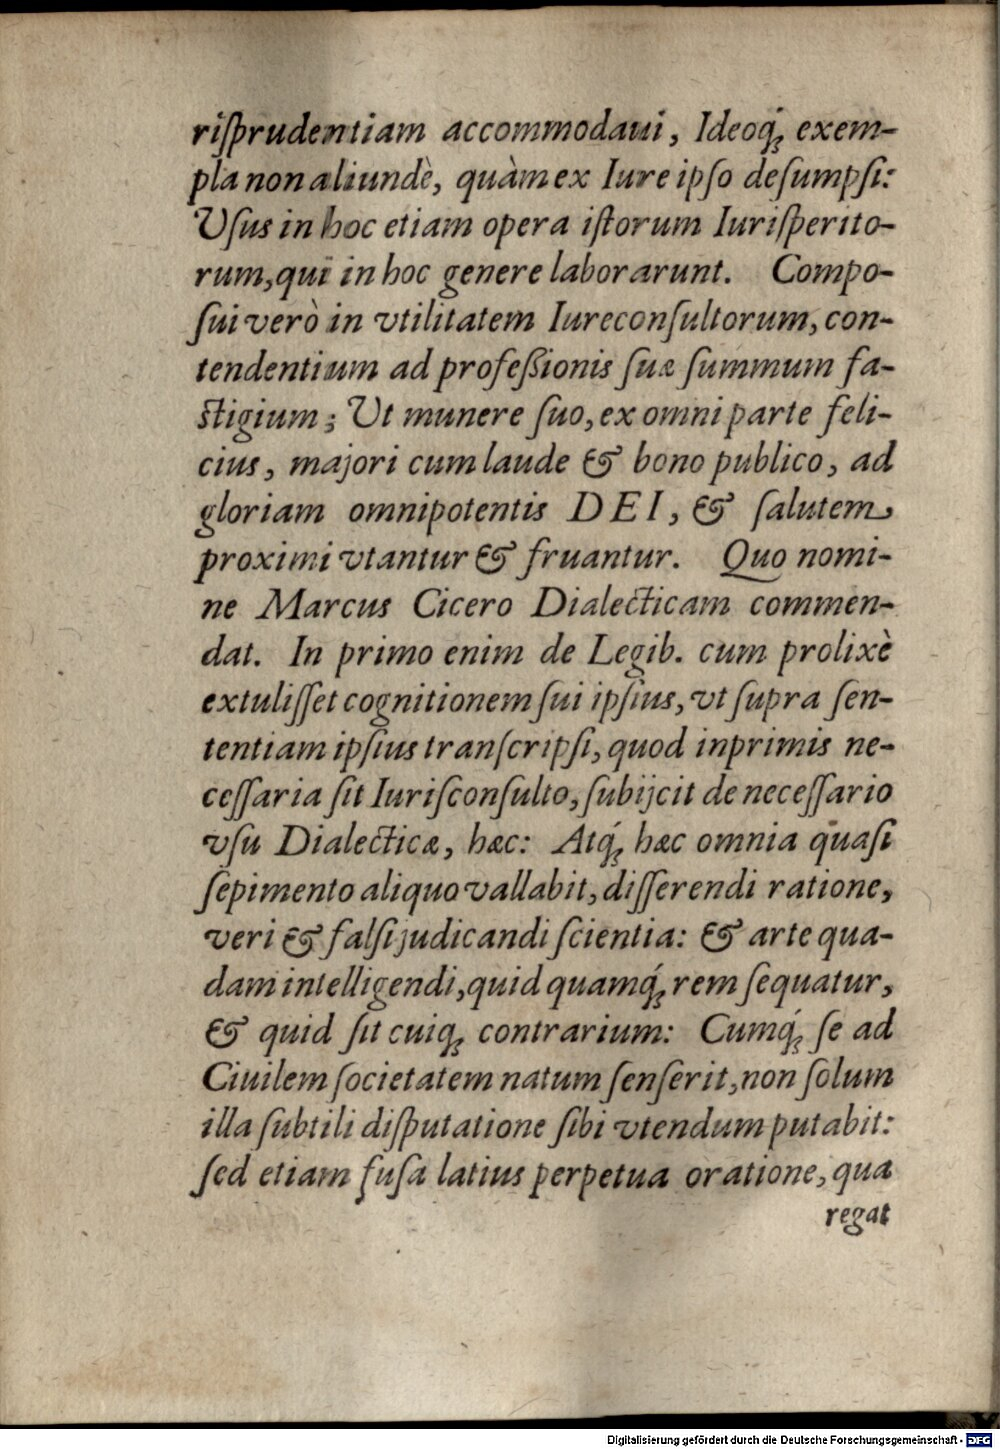 riſprudentiam accommodaui, Ideoq́; exem-
pla non aliundè, quàm ex Iure ipſo deſumpſi:
Vſus in hoc etiam opera iſtorum Iuriſperito-
rum, qui in hoc genere laborarunt. Compo-
ſui verò in vtilitatem Iureconſultorum, con-
tendentium ad profeßionis ſuæ ſummum fa-
ſtigium; Ut munere ſuo, ex omni parte feli-
cius, majori cum laude & bono publico, ad
gloriam omnipotentis DEI, & ſalutem
proximi vtantur & fruantur. Quo nomi-
ne Marcus Cicero Dialecticam commen-
dat. In primo enim de Legib. cum prolixè
extuliſſet cognitionem ſui ipſius, vt ſupra ſen-
tentiam ipſius tranſcripſi, quod inprimis ne-
ceſſaria ſit Iuriſconſulto, ſubijcit de neceſſario
vſu Dialecticæ, hæc: Atq́; hæc omnia quaſi
ſepimento aliquo vallabit, diſſerendi ratione,
veri & falſi judicandi ſcientia: & arte qua-
dam intelligendi, quid quamq́; rem ſequatur,
& quid ſit cuiq; contrarium: Cumq́; ſe ad
Ciuilem ſocietatem natum ſenſerit, non ſolum
illa ſubtili diſputatione ſibi vtendum putabit:
ſed etiam fuſa latius perpetua oratione, qua
regat
Digitalisierung gefördert durch die Deutsche Forschungsgemeinschaft - DFG